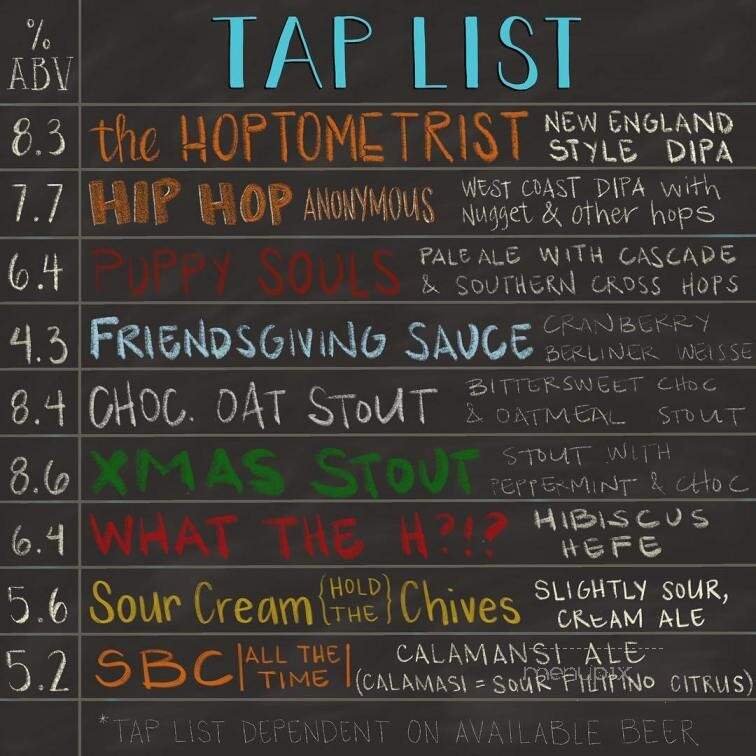 % ABV
TAP LIST
8.3 the HOPTOMETRIST NEW ENGLAND
STYLE DIPA
7.7 HIP HOP ANONYMOUS WEST COAST DIPA with
Nugget & other hops
6.4 PUPPY SOULS PALE ALE WITH CASCADE
& SOUTHERN CROSS HOPS
4.3 FRIENDSGIVING SAUCE CRANBERRY
BERLINER WEISSE
8.4 CHOC. OAT STOUT BITTERSWEET CHOC
& OATMEAL STOUT
8.6 XMAS STOUT STOUT WITH
PEPPERMINT & CHOC
6.4 WHAT THE H?!? HIBISCUS
HEFE
5.6 Sour Cream {HOLD THE} Chives SLIGHTLY SOUR,
CREAM ALE
5.2 SBC |ALL THE TIME| CALAMANSI ALE
(CALAMASI = SOUR FILIPINO CITRUS)
menupix
*TAP LIST DEPENDENT ON AVAILABLE BEER